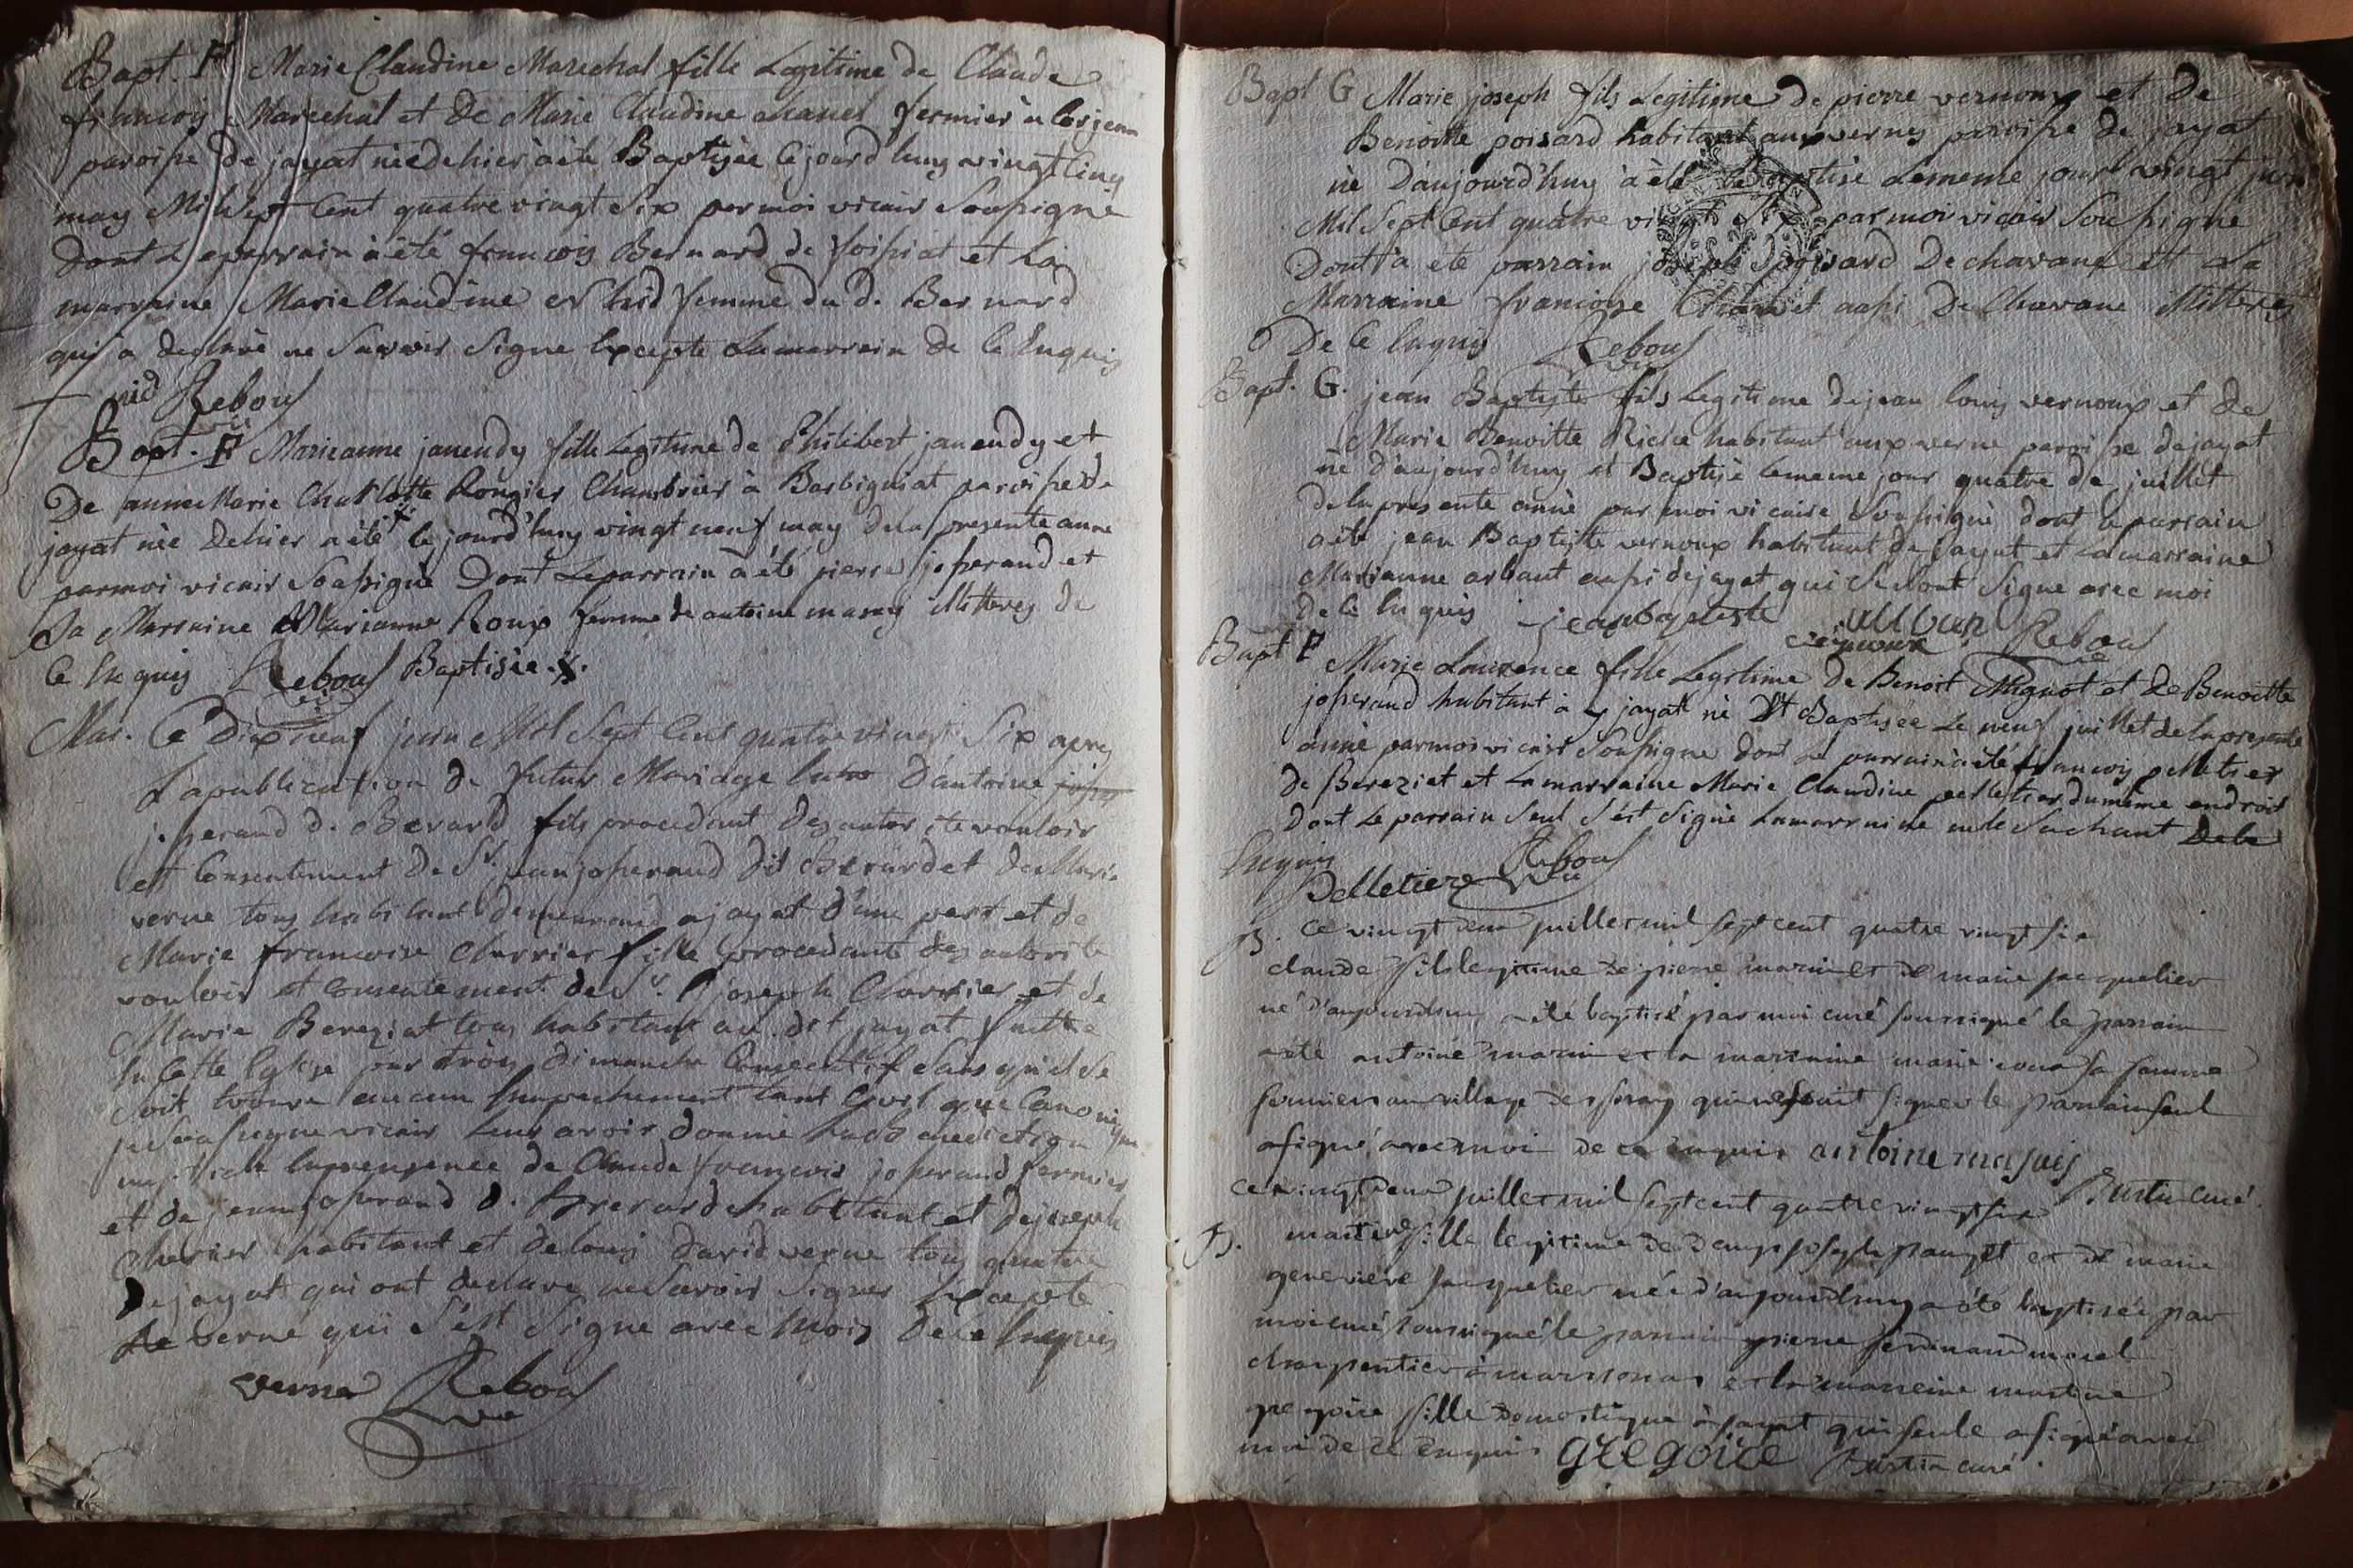 Bapt. F Marie Claudine Marechal fille Legitime de Claude
francois Marechal et De Marie Claudine fermier à
paroisse de jayat née de hier à été Baptisée Cejourd'huy vingt Cinq
may Mil Sept Cent quatre vingt Six par moi vicair Soussigne
Dont Le parrain à été francois Bernard de foissiat et La
marraine Marie Claudine femme du d. Bernard
qui a declaré ne Savoir Signe Excepte La marrain De Ce Enquis
Rebous
vic
Bapt. F Marieanne janendy fille Legitime de Philibert janendy et
De anne Marie Charlotte Rongier Chambrier à Barbignat paroisse de
jayat née De hier a été le jourd'huy vingt neuf may de la presente anne
par moi vicair Soussigné Dont Le parrain à été pierre josserand et
La Marraine Marianne Roux femme de antoine maray illitterés de
Ce Enquis Rebous Baptisée .x.
vic
Mar. Ce Dix neuf juin Mil Sept Cent quatre vingt Six apres
La publication de futur Mariage Entre D'antoine
josserand d. Berard fils procedant des autorité vouloir
et Consentement De Sr. jean josserand dit Berard et de Marie
verne tous habitant demeurand a jayat d'une part et de
Marie francoise Charrier fille procedante des autorité
vouloir et Consentement de Sr. joseph Charrier et de
Marie Bereziat tous habitant au dit jayat faitte
En Cette Eglise par trois Dimanche Consecutif Sans qu'il Se
Soit trouvé aucun Empechement tant Civil que Canonique
je Soussigne vicair Leur avoir donné La Benediction
nuptiale En presence de Claude francois josserand fermier
et de jean josserand d. Berard habitant et De joseph
Charrier habitant et De louis David verne tous quatre
De jayat qui ont declare ne Savoir Signer Excepté
Le verne qui S'est Signe avec Moi De Ce Enquis
verne Rebous
vic
Bapt G Marie joseph fils Legitime de pierre vernoux et De
Benoitte poisard habitant aux vernes paroisse de jayat
né D'aujourd'huy à été Baptisé Le meme jour vingt juin
Mil Sept Cent quatre vingt Six par moi vicair Soussigné
Dont à été parrain joseph poisard De chavane et La
Marraine francoise aussi De Chavane illitterés
De Ce Enquis Rebous
vic
Bapt. G. jean Baptiste fils Legitime de jean louis vernoux et de
Marie Benoitte Riche habitant aux verne paroisse de jayat
né D'aujourd'huy et Baptisé Le meme jour quatre de juillet
de la presente anné par moi vicaire Soussigné dont Le parrain
a été jean Baptiste vernoux habitant de jayat et La marraine
Marianne arbant aussi de jayat qui Se Sont Signe avec moi
de Ce Enquis jeanbaptiste
vernoux Rebous
vic
Bapt F Marie Laurence fille Legitime De Benoit Mignot et de Benoitte
josserand habitant à jayat né Et Baptisée Le neuf juillet de la presente
anné par moi vicair Soussigne dont Le parrain à été francois pelletier
De Bereziat et La marraine Marie Claudine pelletier du même endroit
Dont Le parrain Seul S'est Signé La marraine ne le Sachant De Ce
Enquis
pelletier Rebous
vic
B. ce vingt deux juillet mil sept cent quatre vingt six
claude fils legitime de pierre marin et de marie jacquelier
né d'aujourdhuy a été baptisé par moi curé soussigné le parrain
a été antoine marin et la marraine marie sa femme
fermiers au village des qui ne sait signer le parrain seul
a signé avec moi de ce enquis antoine
Bustin curé
ce vingt deux juillet mil sept cent quatre vingt six
B. martine fille legitime de denys joseph pauget et de marie
genevieve jacquelier née d'aujourdhuy a été baptisée par
moi curé soussigné le parrain pierre ferdinand morel
charpentier à marsonas et la marraine martine
gregoire fille domestique à jayat qui seule a signé avec
moi de ce enquis gregoire Bustin curé